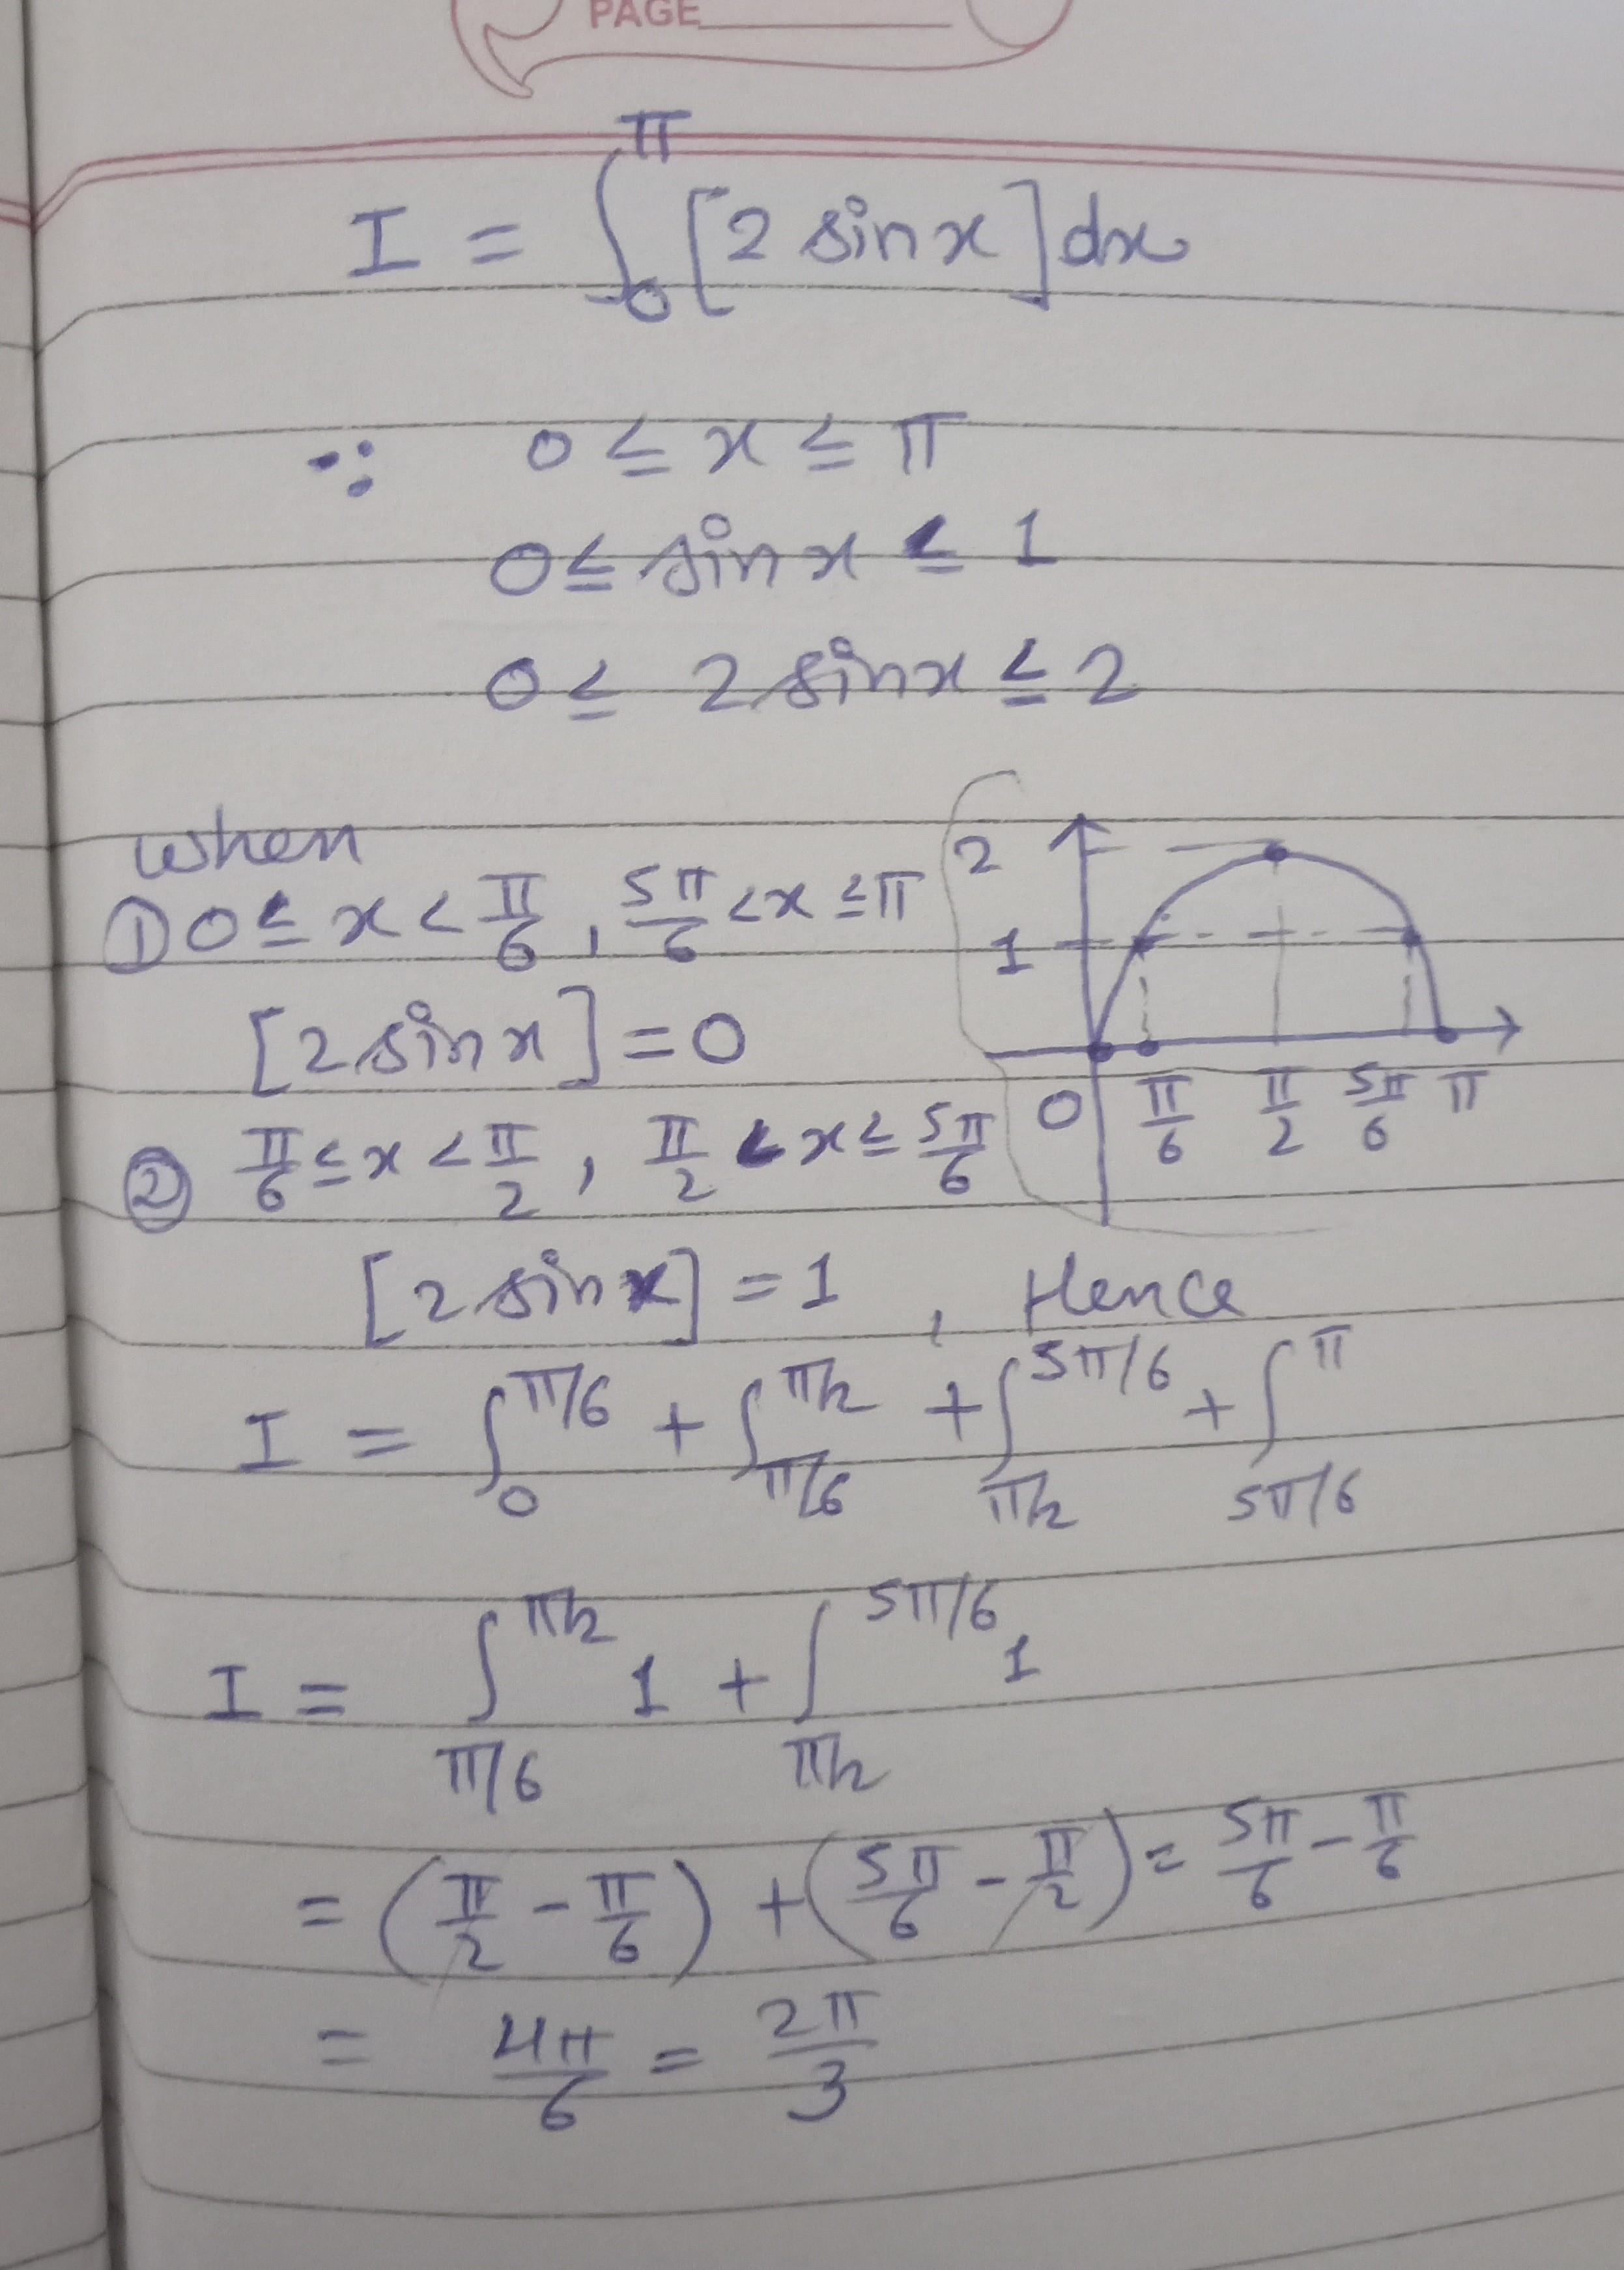 PAGE
I = ∫₀^π [2 sin x] dx
∵ 0 ≤ x ≤ π
0 ≤ sin x ≤ 1
0 ≤ 2 sin x ≤ 2
when
① 0 ≤ x < π/6 , 5π/6 < x ≤ π
[2 sin x] = 0
② π/6 ≤ x < π/2 , π/2 < x ≤ 5π/6
2
1
0 π/6 π/2 5π/6 π
[2 sin x] = 1 , Hence
I = ∫₀^π/6 + ∫_π/6^π/2 + ∫_π/2^5π/6 + ∫_5π/6^π
I = ∫_π/6^π/2 1 + ∫_π/2^5π/6 1
= (π/2 - π/6) + (5π/6 - π/2) = 5π/6 - π/6
= 4π/6 = 2π/3